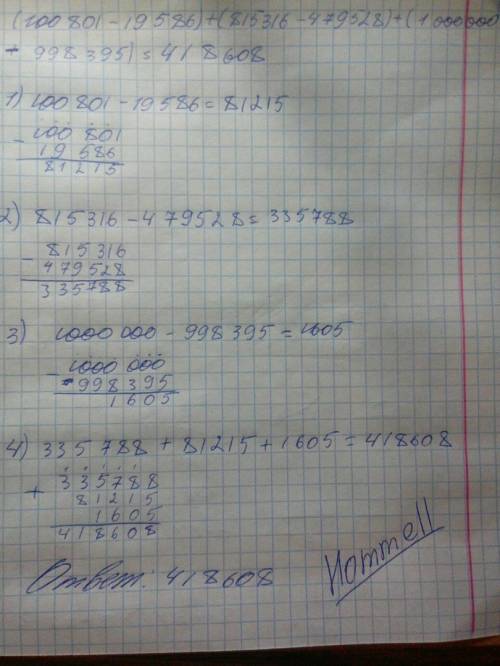 (100 801 - 19 586) + (815316 - 479528) + (1 000 000
- 998 395) = 418608
1) 100 801 - 19586 = 81215
- 100 801
19 586
81215
2) 815316 - 479528 = 335788
- 815316
479528
335788
3) 1000 000 - 998 395 = 1605
- 1000 000
998395
1605
4) 335 788 + 81215 + 1605 = 418608
+ 335788
81215
1605
418608
Ответ: 418608
Hommell